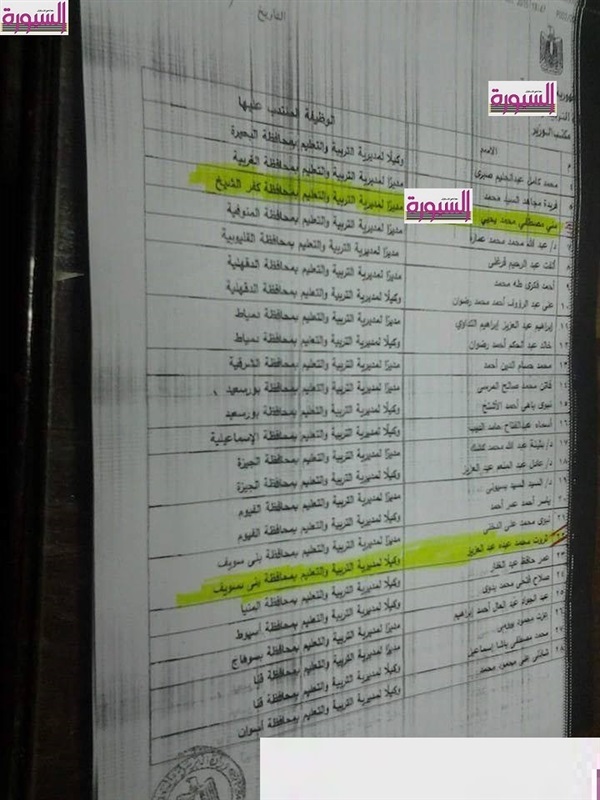 السبورة
التاريخ
السبورة
مكتب الوزير
م
الاسم
الوظيفة المنتدب عليها
٤
محمد كامل عبدالحليم صبرى
وكيلًا لمديرية التربية والتعليم بمحافظة البحيرة
فريدة مجاهد السيد محمد
مديرًا لمديرية التربية والتعليم بمحافظة الغربية
مصطفى محمد
السبورة
مديرًا لمديرية التربية والتعليم بمحافظة كفر الشيخ
٧
د/ عبد الله محمد محمد عمارة
مديرًا لمديرية التربية والتعليم بمحافظة المنوفية
٨
ألفت عبد الرحيم
مديرًا لمديرية التربية والتعليم بمحافظة القليوبية
٩
أحمد فكرى طه محمد
مديرًا لمديرية التربية والتعليم بمحافظة الدقهلية
١٠
على عبد الرؤوف أحمد محمد رضوان
وكيلًا لمديرية التربية والتعليم بمحافظة الدقهلية
١١
إبراهيم عبد العزيز إبراهيم التداوي
مديرًا لمديرية التربية والتعليم بمحافظة دمياط
١٢
خالد عبد الحكم أحمد رضوان
وكيلًا لمديرية التربية والتعليم بمحافظة دمياط
١٣
محمد حسام الدين أحمد
مديرًا لمديرية التربية والتعليم بمحافظة الشرقية
١٤
فاتن محمد صالح المرسى
مديرًا لمديرية التربية والتعليم بمحافظة بورسعيد
١٥
نبوى باهى أحمد
وكيلًا لمديرية التربية والتعليم بمحافظة بورسعيد
١٦
أسماء عبدالفتاح حامد
وكيلًا لمديرية التربية والتعليم بمحافظة الإسماعيلية
١٧
د/ بثينة عبد الله محمد كشك
مديرًا لمديرية التربية والتعليم بمحافظة الجيزة
١٨
د/ عبد المنعم عبد العزيز
وكيلًا لمديرية التربية والتعليم بمحافظة الجيزة
١٩
د/ السيد السيد بسيونى
مديرًا لمديرية التربية والتعليم بمحافظة الفيوم
٢٠
ياسر أحمد عمر أحمد
وكيلًا لمديرية التربية والتعليم بمحافظة الفيوم
٢١
نبوى محمد على
مديرًا لمديرية التربية والتعليم بمحافظة بنى سويف
٢٢
ثروت محمد عبده عبد العزيز
وكيلًا لمديرية التربية والتعليم بمحافظة بنى سويف
٢٣
عمر حافظ عبد الغفار
وكيلًا لمديرية التربية والتعليم بمحافظة المنيا
٢٤
صلاح فتحى محمد بدوى
وكيلًا لمديرية التربية والتعليم بمحافظة أسيوط
٢٥
عبد الجواد عبد العال أحمد إبراهيم
مديرًا لمديرية التربية والتعليم بمحافظة سوهاج
٢٦
محمود
مديرًا لمديرية التربية والتعليم بمحافظة قنا
٢٧
محمد مصطفى باشا إسماعيل
وكيلًا لمديرية التربية والتعليم بمحافظة قنا
٢٨
محمود محمد
وكيلًا لمديرية التربية والتعليم بمحافظة أسوان